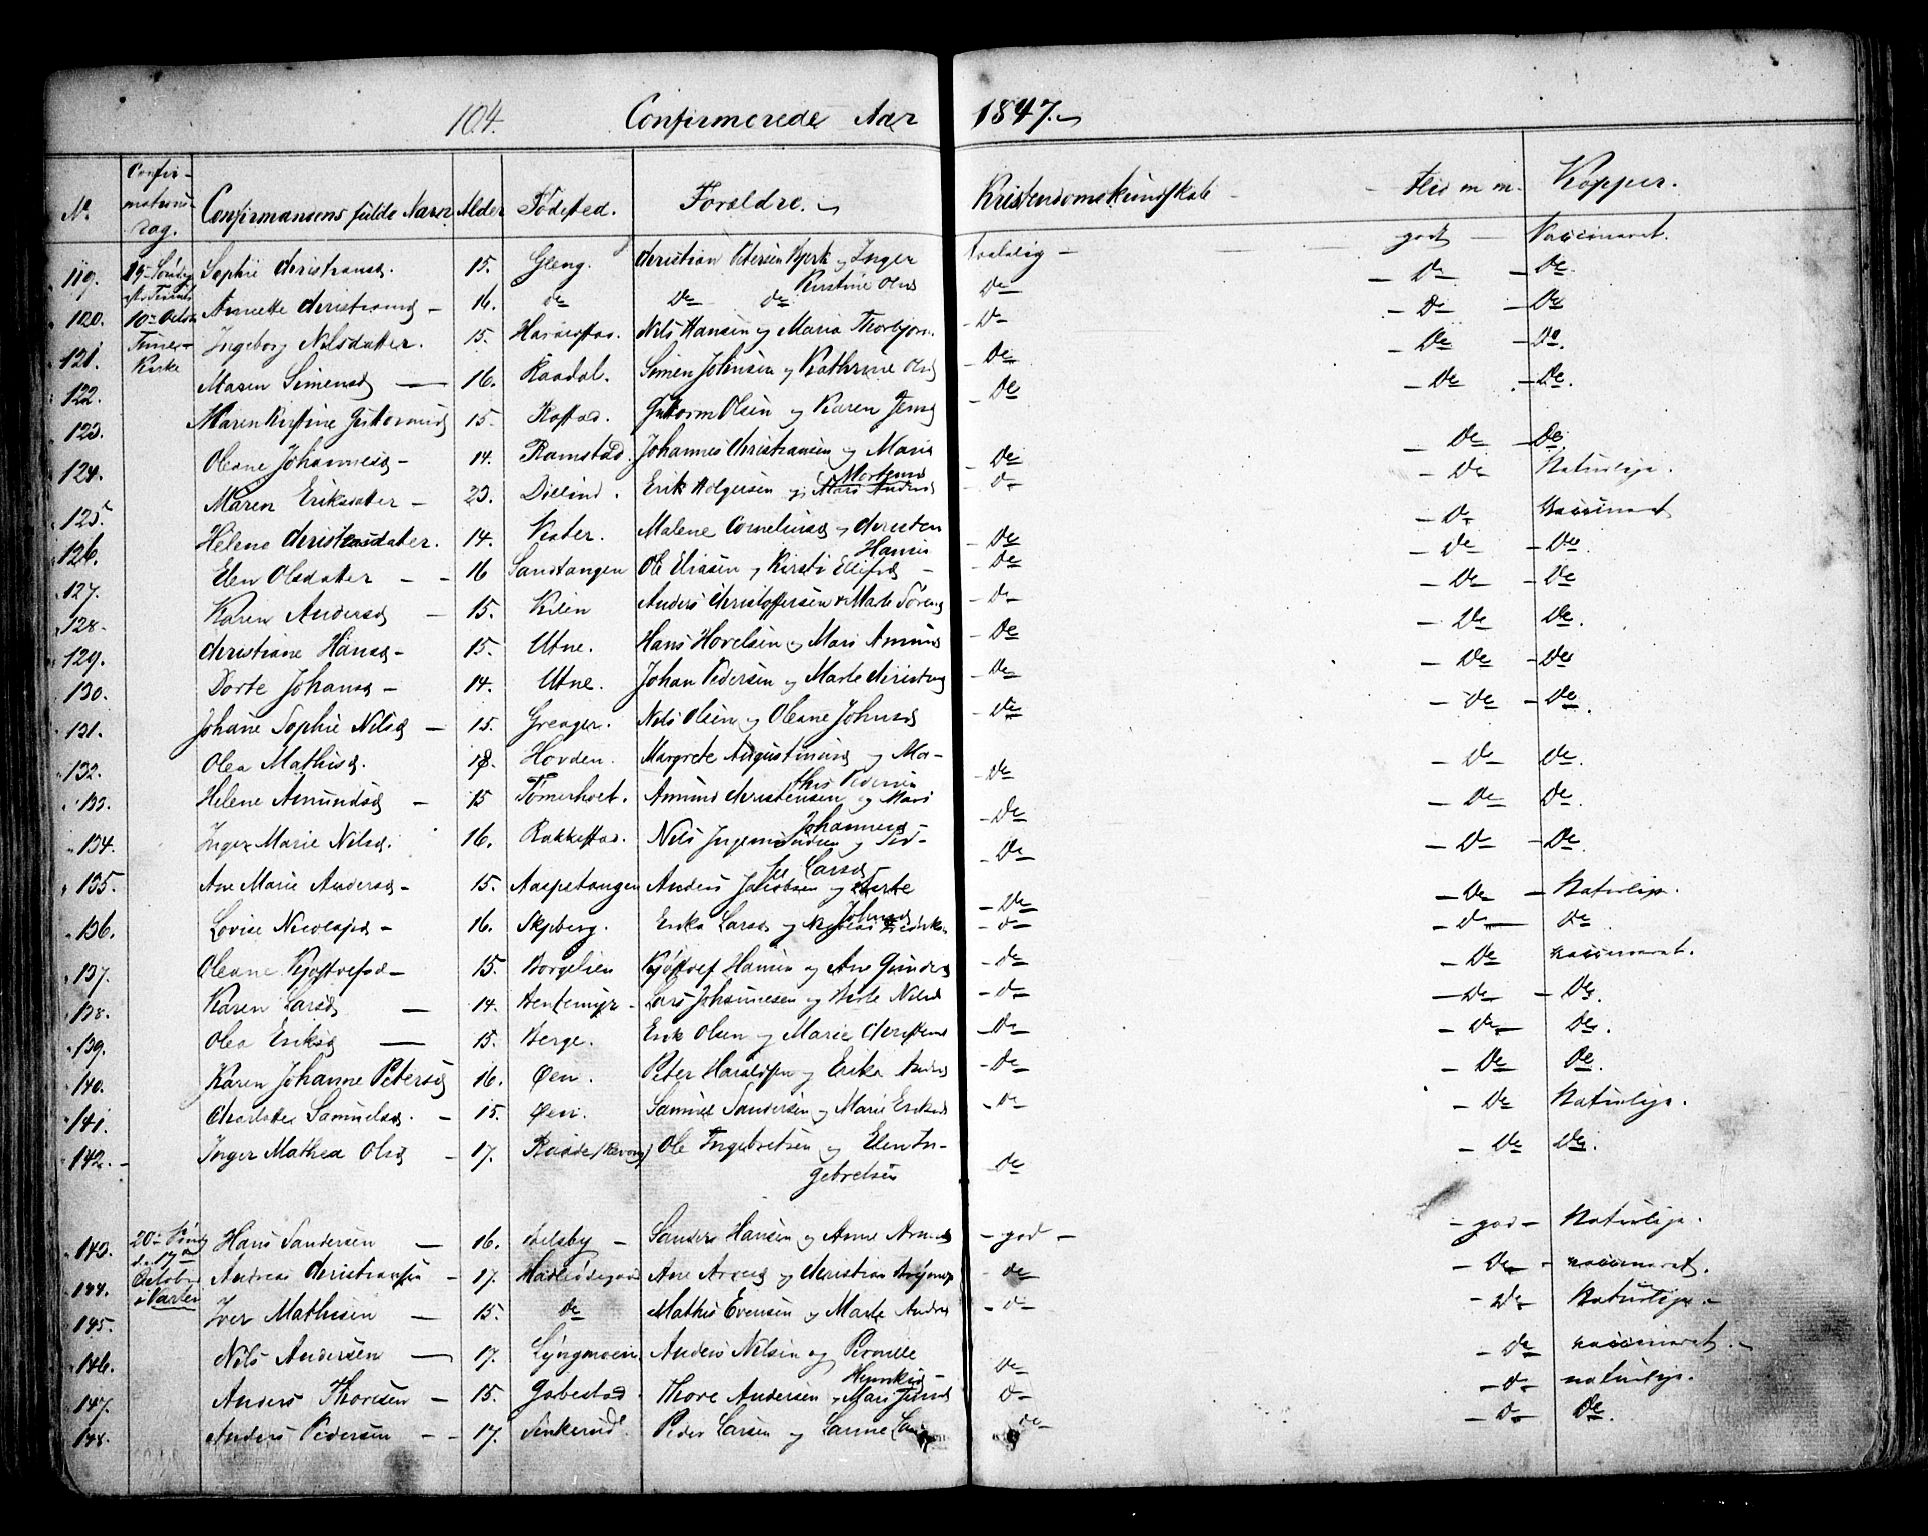 104. Confirmerede Aar 1847.
No Confirmations Dag. Confirmansens fulde Navn Alder Fødested. Forældre. Kristendomskundskab Flid m m. Kopper.
119. 19 Søndag Sophie Christiansd. 15. Gleng. Christian Petersen Bjerk og Inger taalelig god Vaccineret.
Kirstine Olsd
120. 10 Octob Annette Christiansd 16. do Do do Do Do Do
121. Tune Kirke Ingeborg Nilsdatter. 15. Haralstad. Nils Hansen og Maria Thorbjørn. Do Do Do
122. Maren Simensd 16. Raadal. Simen Johnsen og Kathrine Olsd Do Do Do.
123. Maren Kirstine Guttormsd 15. Rostad. Guttorm Olsen og Karen Jensd Do Do Do.
124. Oleane Johannesd 14. Ramstad. Johannes Christiansen og Maria Do Do Do
Mortensd
125. Maren Eriksdatter 23. Dillind. Erik Holgersen og Mari Andersd do Do Naturlige.
126. Helene Christensdatter. 14. Kater. Malene Corneliusd og Christen Do Do Vaccineret
Hansen
127. Elen Olsdatter 16 Sandtangen Ole Eliasen og Kirsti Ellefsd Do Do Do
128. Karen Andersd 15. Kilen Anders Christoffersen & Marte Sørensd do Do Do
129. Christiane Hansd 15. Utne. Hans Hovelsen og Mari Amunds Do Do Do.
130. Dorte Johansd 14. Utne. Johan Pedersen og Marte Christensd Do Do Do
131. Johane Sophie Nilsd 15. Greager. Nils Olsen og Oleane Johnsd Do Do Do
132. Olea Mathisd. 18. Hovden. Margrete Augustinusd og Ma- Do Do Do.
this Pedersen
133. Helene Amundsd 15 Tømerholt. Amund Christensen og Mari Do Do Do.
Johannesd
134. Inger Marie Nilsd. 16. Rakkestad. Nils Ingemundsen og Sid- Do Do Do.
se Larsd
135. Ane Marie Andersd 15. Aaspetangen Anders Jakobsen og Marte Do Do Naturlige.
Johnsd
136. Lovise Nicolajsd 16. Skjeberg. Erika Larsd og Nicolai do do do
137. Oleane Kjøstolfsd 15. Borgelien Kjøstolf Hansen og Ane Gundersd do Do vaccineret.
138. Karen Larsd 14. Bentemyr Lars Johannesen og Berte Nilsd do Do Do.
139. Olea Eriksd 15. Berge. Erik Olsen og Marie Christensd Do Do Do.
140. Karen Johanne Petersd 16. Øen. Peter Haraldsen og Erika Andersd Do Do Do.
141. Charlotte Samuelsd. 15. Øen. Samuel Sandersen og Marie Eriksd do Do Naturlige.
142. Inger Mathea Olsd 17. Raade Ole Ingebretsen og Elen In- do Do Do.
gebretsen
143. 20 Sønd Hans Sandersen 16. Sanders Hansen og Anne god god Naturlige.
144. d. 17 October Andreas Christiansen 17. Ane og Christian do Do vaccineret.
145. i Varteig Iver Mathisen 15. do Mathis Evensen og Marte Andersd do Do Naturlige.
146. Nils Andersen 17. Lyngmoen. Anders Nilsen og Pernille Do Do vaccineret.
147. Anders Thoresen 15. Gabestad Thore Andersen & Mari Jensd do do naturlige.
148. Anders Pedersen 17. Tinkerud. Peder Larsen og do do Do.